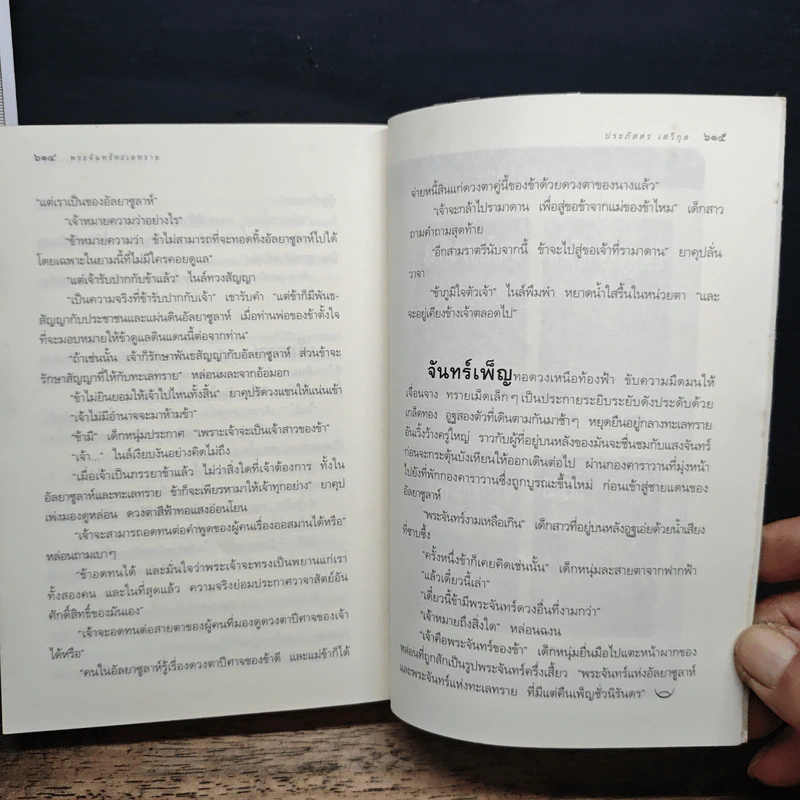 ๖๑๔...พระจันทร์ทะเลทราย
"แต่เราเป็นของอัลยาซูลาห์"
"เจ้าหมายความว่าอย่างไร"
"ข้าหมายความว่า ข้าไม่สามารถที่จะทอดทิ้งอัลยาซูลาห์ไปได้
โดยเฉพาะในยามนี้ที่ไม่มีใครคอยดูแล"
"แต่เจ้ารับปากกับข้าแล้ว" ไนล์ทวงสัญญา
"เป็นความจริงที่ข้ารับปากกับเจ้า" เขารับคำ "แต่ข้าก็มีพันธ-
สัญญากับประชาชนและแผ่นดินอัลยาซูลาห์ เมื่อท่านพ่อของข้าตั้งใจ
ที่จะมอบหมายให้ข้าดูแลดินแดนนี้ต่อจากท่าน"
"ถ้าเช่นนั้น เจ้าก็รักษาพันธสัญญากับอัลยาซูลาห์ ส่วนข้าจะ
รักษาสัญญาที่ให้กับทะเลทราย" หล่อนผละจากอ้อมอก
"ข้าไม่ยินยอมให้เจ้าไปไหนทั้งสิ้น" ยาคุปรัดวงแขนให้แน่นเข้า
"เจ้าไม่มีอำนาจจะมาห้ามข้า"
"ข้ามี" เด็กหนุ่มประกาศ "เพราะเจ้าจะเป็นเจ้าสาวของข้า"
"เจ้า..." ไนล์เงียบงันอย่างคิดไม่ถึง
"เมื่อเจ้าเป็นภรรยาข้าแล้ว ไม่ว่าสิ่งใดที่เจ้าต้องการ ทั้งใน
อัลยาซูลาห์และทะเลทราย ข้าก็จะเพียรหามาให้เจ้าทุกอย่าง" ยาคุป
เพ่งมองดูหล่อน ดวงตาสีฟ้าทอแสงอ่อนโยน
"เจ้าจะสามารถอดทนต่อคำพูดของผู้คนเรื่องออสมานได้หรือ"
หล่อนถามเบาๆ
"ข้าอดทนได้ และมั่นใจว่าพระเจ้าจะทรงเป็นพยานแก่เรา
ทั้งสองคน และในที่สุดแล้ว ความจริงย่อมประกาศวาจาสัตย์อัน
ศักดิ์สิทธิ์ของมันเอง"
"เจ้าจะอดทนต่อสายตาของผู้คนที่มองดูดวงตาปีศาจของเจ้า
ได้หรือ"
"คนในอัลยาซูลาห์รู้เรื่องดวงตาปีศาจของข้าดี และแม่ข้าก็ได้
ประภัสสร เสวิกุล ๖๑๕
จ่ายหนี้สินแก่ดวงตาคู่นี้ของข้าด้วยดวงตาของนางแล้ว"
"เจ้าจะกล้าไปรามาดาน เพื่อสู่ขอข้าจากแม่ของข้าไหม" เด็กสาว
ถามคำถามสุดท้าย
"อีกสามราตรีนับจากนี้ ข้าจะไปสู่ขอเจ้าที่รามาดาน" ยาคุปลั่น
วาจา
"ข้าภูมิใจตัวเจ้า" ไนล์พึมพำ หยาดน้ำใสรื้นในหน่วยตา "และ
จะอยู่เคียงข้างเจ้าตลอดไป"
จันทร์เพ็ญทอดวงเหนือท้องฟ้า ขับความมืดมนให้
เจื่อนจาง ทรายเม็ดเล็กๆ เป็นประกายระยิบระยับดังประดับด้วย
เกล็ดทอง อูฐสองตัวที่เดินตามกันมาช้าๆ หยุดยืนอยู่กลางทะเลทราย
อันเวิ้งว้างครู่ใหญ่ ราวกับผู้ที่อยู่บนหลังของมันจะชื่นชมกับแสงจันทร์
ก่อนจะกระตุ้นบังเหียนให้ออกเดินต่อไป ผ่านกองคาราวานที่มุ่งหน้า
ไปยังที่พักกองคาราวานซึ่งถูกบูรณะขึ้นใหม่ ก่อนเข้าสู่ชายแดนของ
อัลยาซูลาห์
"พระจันทร์งามเหลือเกิน" เด็กสาวที่อยู่บนหลังอูฐเอ่ยด้วยน้ำเสียง
ที่ซาบซึ้ง
"ครั้งหนึ่งข้าก็เคยคิดเช่นนั้น" เด็กหนุ่มละสายตาจากฟากฟ้า
"แล้วเดี๋ยวนี้เล่า"
"เดี๋ยวนี้ข้ามีพระจันทร์ดวงอื่นที่งามกว่า"
"เจ้าหมายถึงสิ่งใด" หล่อนฉงน
"เจ้าคือพระจันทร์ของข้า" เด็กหนุ่มยื่นมือไปแตะหน้าผากของ
หล่อนที่ถูกสักเป็นรูปพระจันทร์ครึ่งเสี้ยว "พระจันทร์แห่งอัลยาซูลาห์
และพระจันทร์แห่งทะเลทราย ที่มีแต่คืนเพ็ญชั่วนิรันดร"